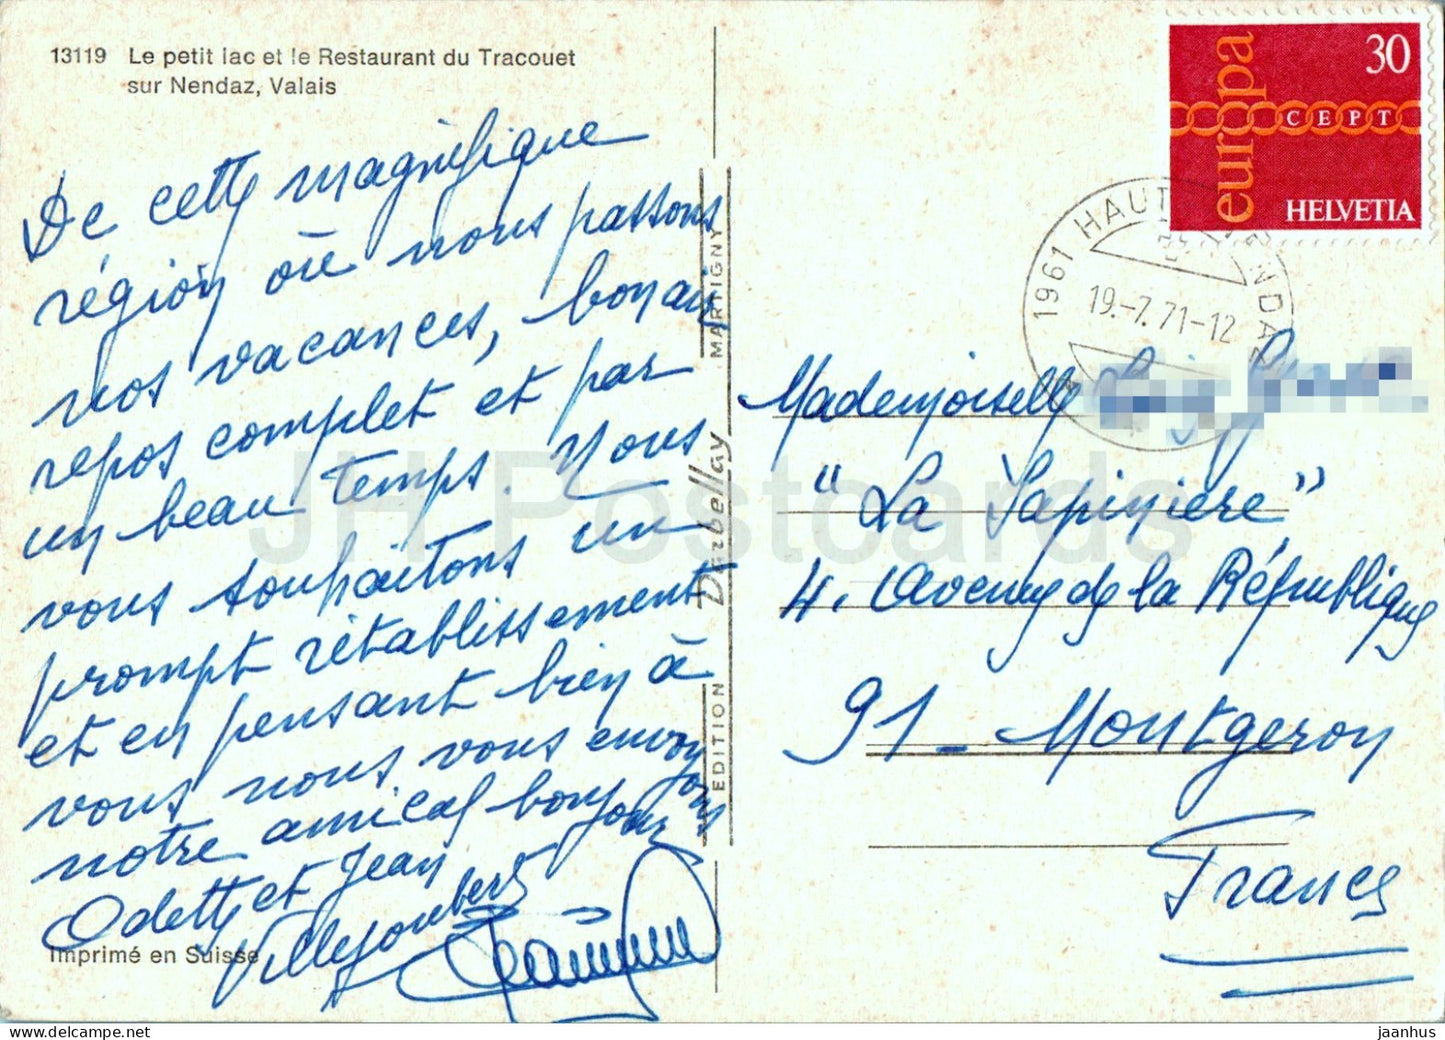 13119 Le petit lac et le Restaurant du Tracouet
sur Nendaz, Valais
De cette magnifique
région où nous passons
nos vacances, bon air,
repos complet et par
un beau temps. Nous
vous souhaitons un
prompt rétablissement
et en pensant bien à
vous nous vous envoyons
notre amical bonjour
Odette et Jean
Villejoubert
Imprimé en Suisse
EDITION Darbellay MARTIGNY
europa
30
CEPT
HELVETIA
1961 HAUTE-NENDAZ
19.-7.71-12
Mademoiselle
"La Sapiniere"
4. Avenue de la République
91 - Montgeron
France
JH Postcards
www.delcampe.net
jaanhus